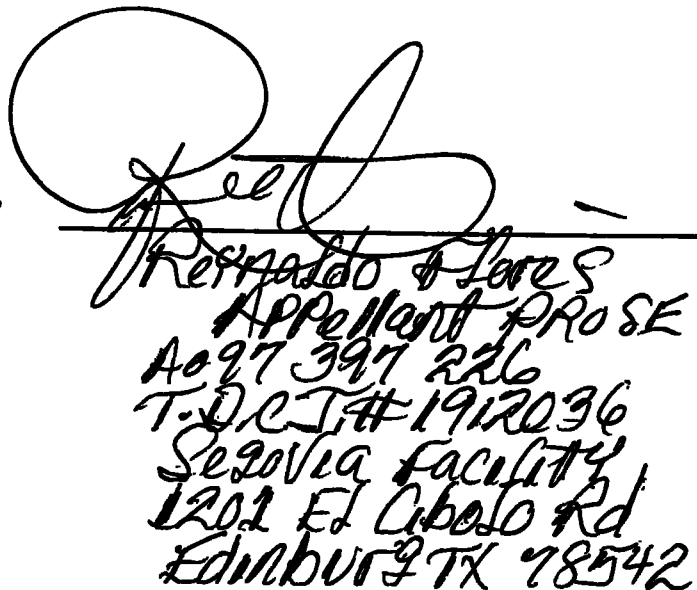 Reynaldo Flores
APPellant PROSE
A097 397 226
T.D.C.J.# 1912036
Segovia Facility
1201 El Cibolo Rd
Edinburg TX 78542